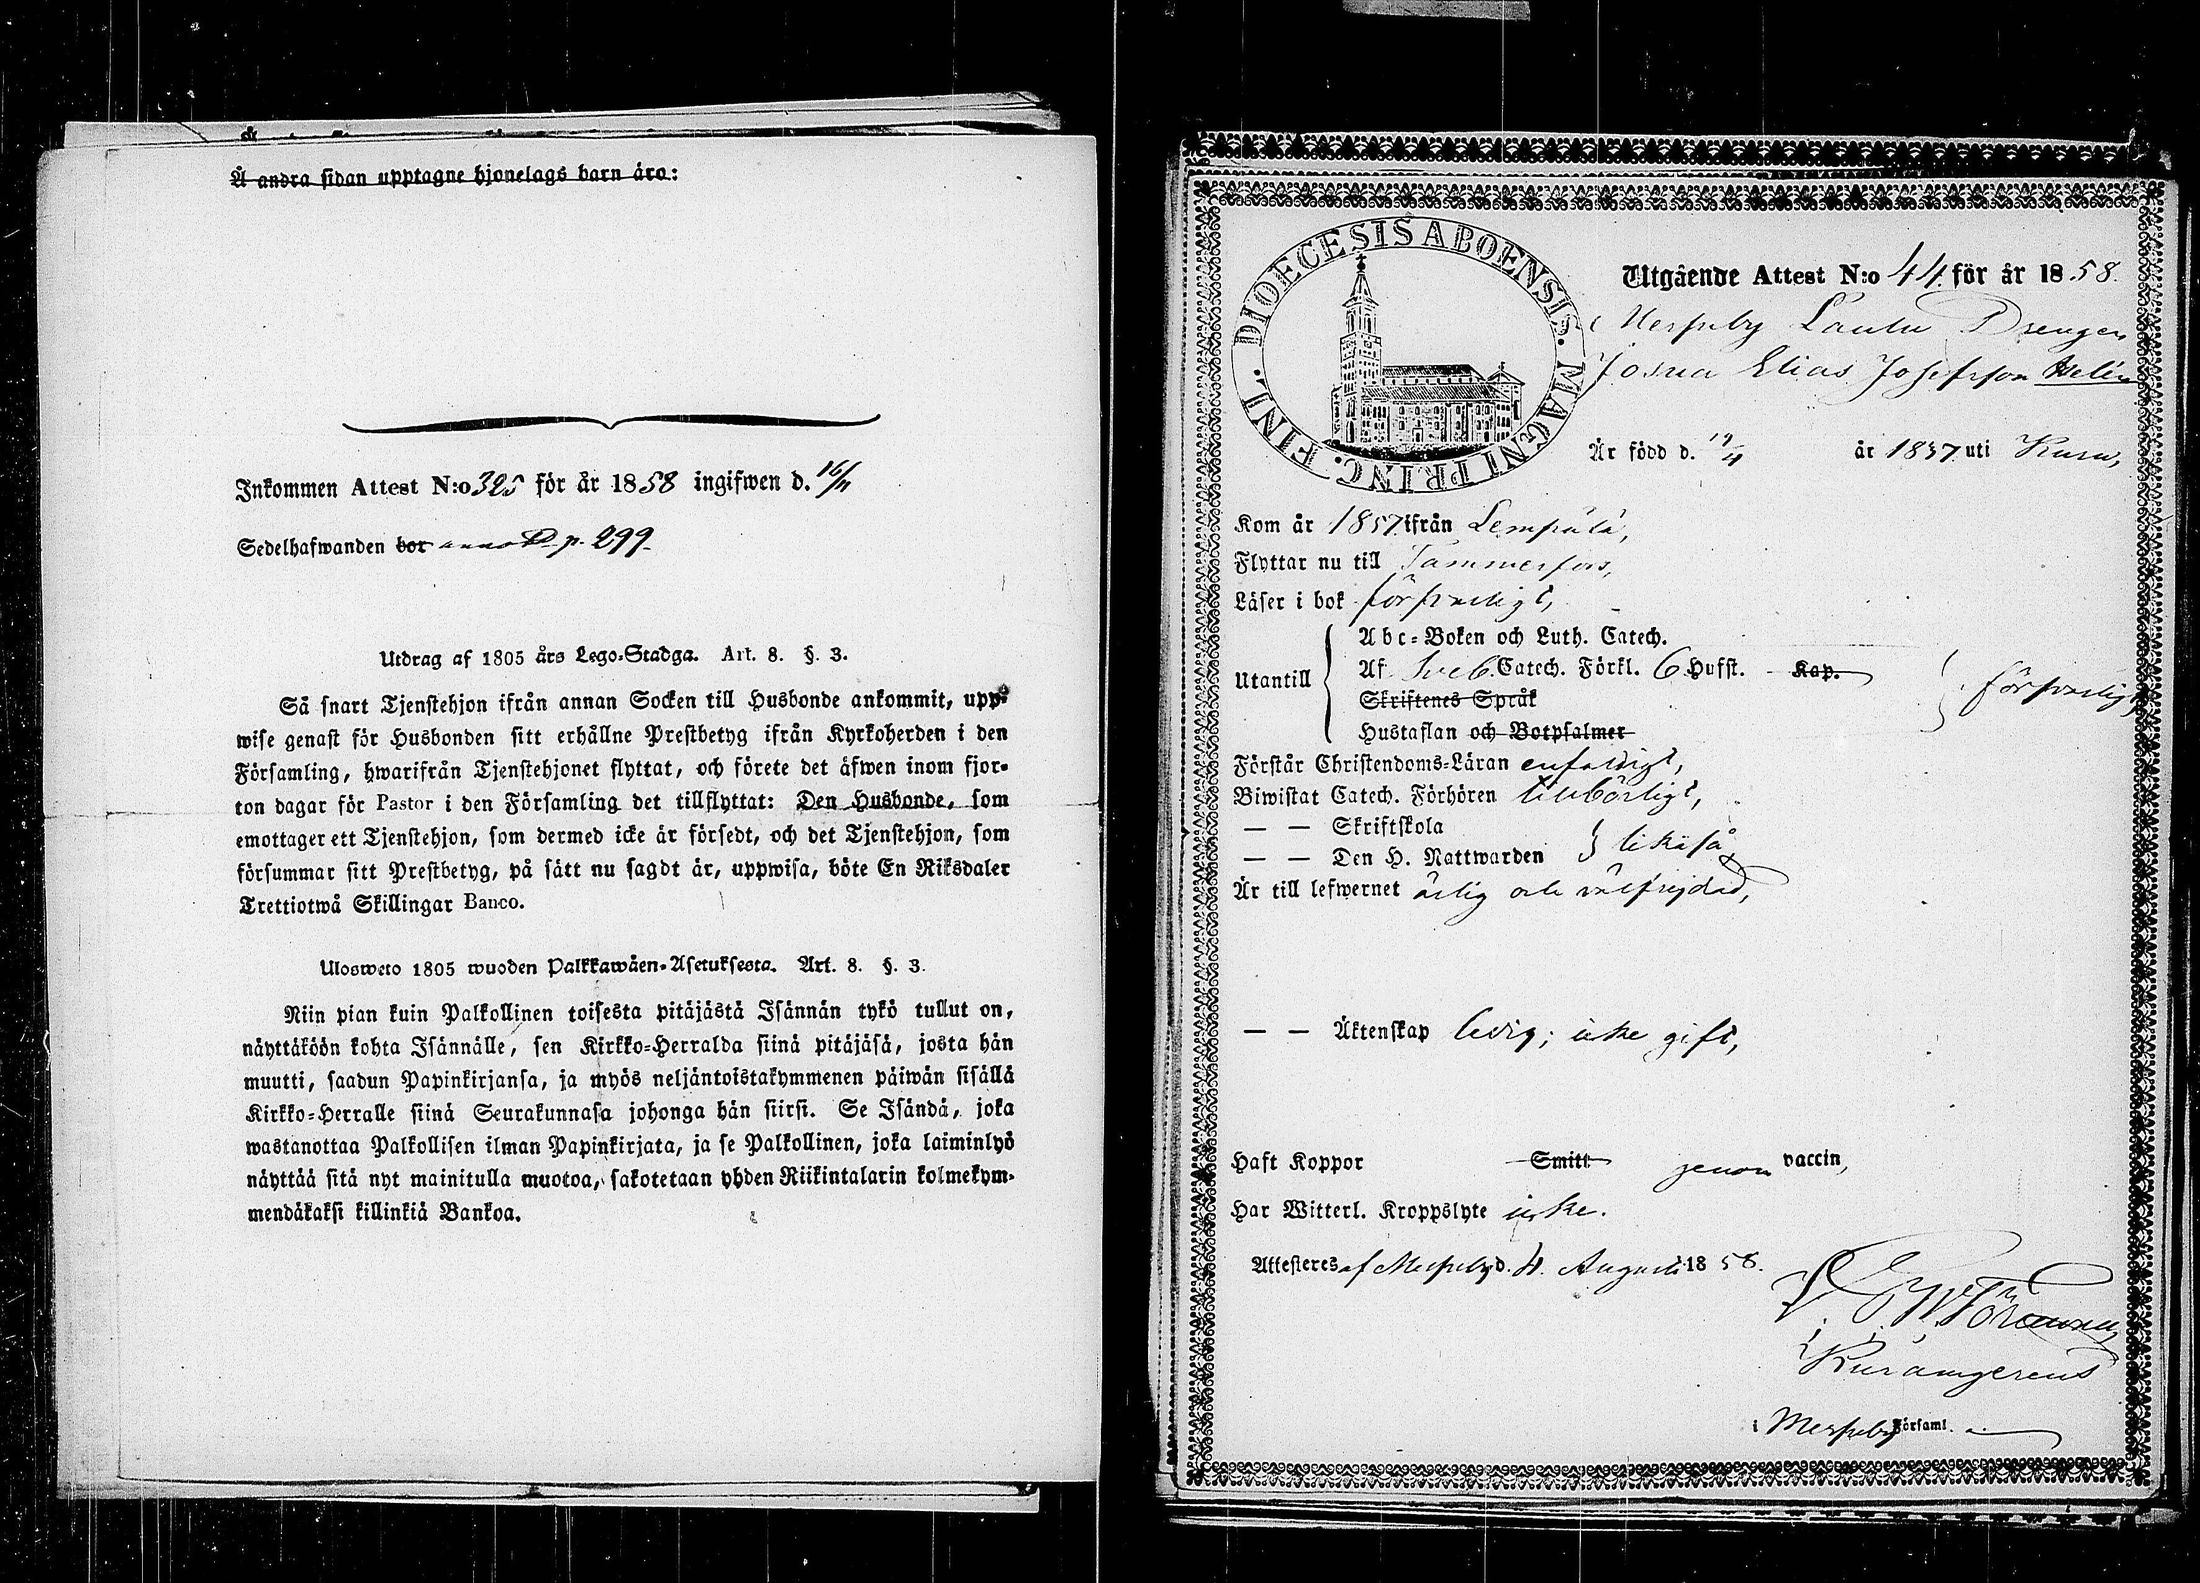 Å andra sidan upptagne hjonelags barn äro:
Inkommen Attest N:o 325 för år 1858 ingifwen d. 16/11
Sedelhafwanden bor p. 299.
Utdrag af 1805 års Lego-Stadga. Art. 8. §. 3.
Så snart Tjenstehjon ifrån annan Socken till Husbonde ankommit, upp-
wise genast för Husbonden sitt erhållne Prestbetyg ifrån Kyrkoherden i den
Församling, hwarifrån Tjenstehjonet flyttat, och förete det äfwen inom fjor-
ton dagar för Pastor i den Församling det tillflyttat: Den Husbonde, som
emottager ett Tjenstehjon, som dermed icke är försedt, och det Tjenstehjon, som
försummar sitt Prestbetyg, på sätt nu sagdt är, uppwisa, böte En Riksdaler
Trettiotwå Skillingar Banco.
Ulosweto 1805 wuoden Palkkawäen-Asetuksesta. Art. 8. §. 3.
Niin pian kuin Palkollinen toisesta pitäjästä Isännän tykö tullut on,
näyttäköön kohta Isännälle, sen Kirkko-Herralda siinä pitäjäsä, josta hän
muutti, saadun Papinkirjansa, ja myös neljäntoistakymmenen päiwän sisällä
Kirkko-Herralle siinä Seurakunnasa johonga hän siirsi. Se Isändä, joka
wastanottaa Palkollisen ilman Papinkirjata, ja se Palkollinen, joka laiminlyö
näyttää sitä nyt mainitulla muotoa, sakotetaan yhden Riikintalarin kolmekym-
mendäkaksi killinkiä Bankoa.
DIOECESIS ABOENSIS. MAGNI PRINC. FINL.
Utgående Attest N:o 44 för år 1858.
Messuby Drengen
Josua Elias Josefsson Helin
Är född d. 19/4 år 1837 uti Kuru,
Kom år 1857 ifrån Lempälä,
Flyttar nu till Tammerfors,
Läser i bok försvarligt,
Utantill
Abc-Boken och Luth. Catech.
Af Sveb. Catech. Förkl. 6 Hufst. Kap.
Skriftenes Språk
försvarligt,
Hustaflan och Botpsalmer
Förstår Christendoms-Läran enfaldigt,
Biwistat Catech. Förhören tillbörligt,
— — Skriftskola
— — Den H. Nattwarden likaså,
Är till lefwernet ärlig och välfrejdad,
— — Äktenskap ledig; icke gift,
Haft Koppor Smitt genom vaccin,
Har Witterl. Kroppslyte icke.
Attesteres af Messuby d. 4. Augusti 1858.
i Messuby Församl.